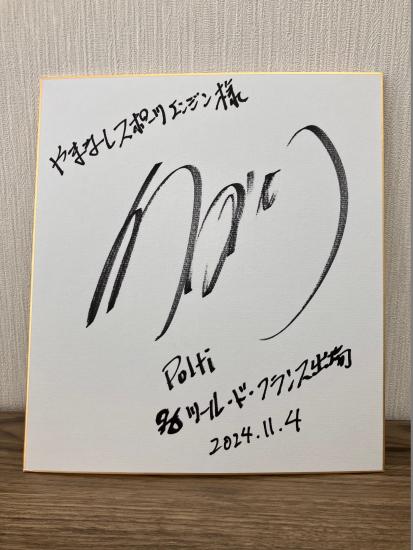 やまなしスポーツエンジン様
Polti
96 ツール・ド・フランス出場
2024.11.4